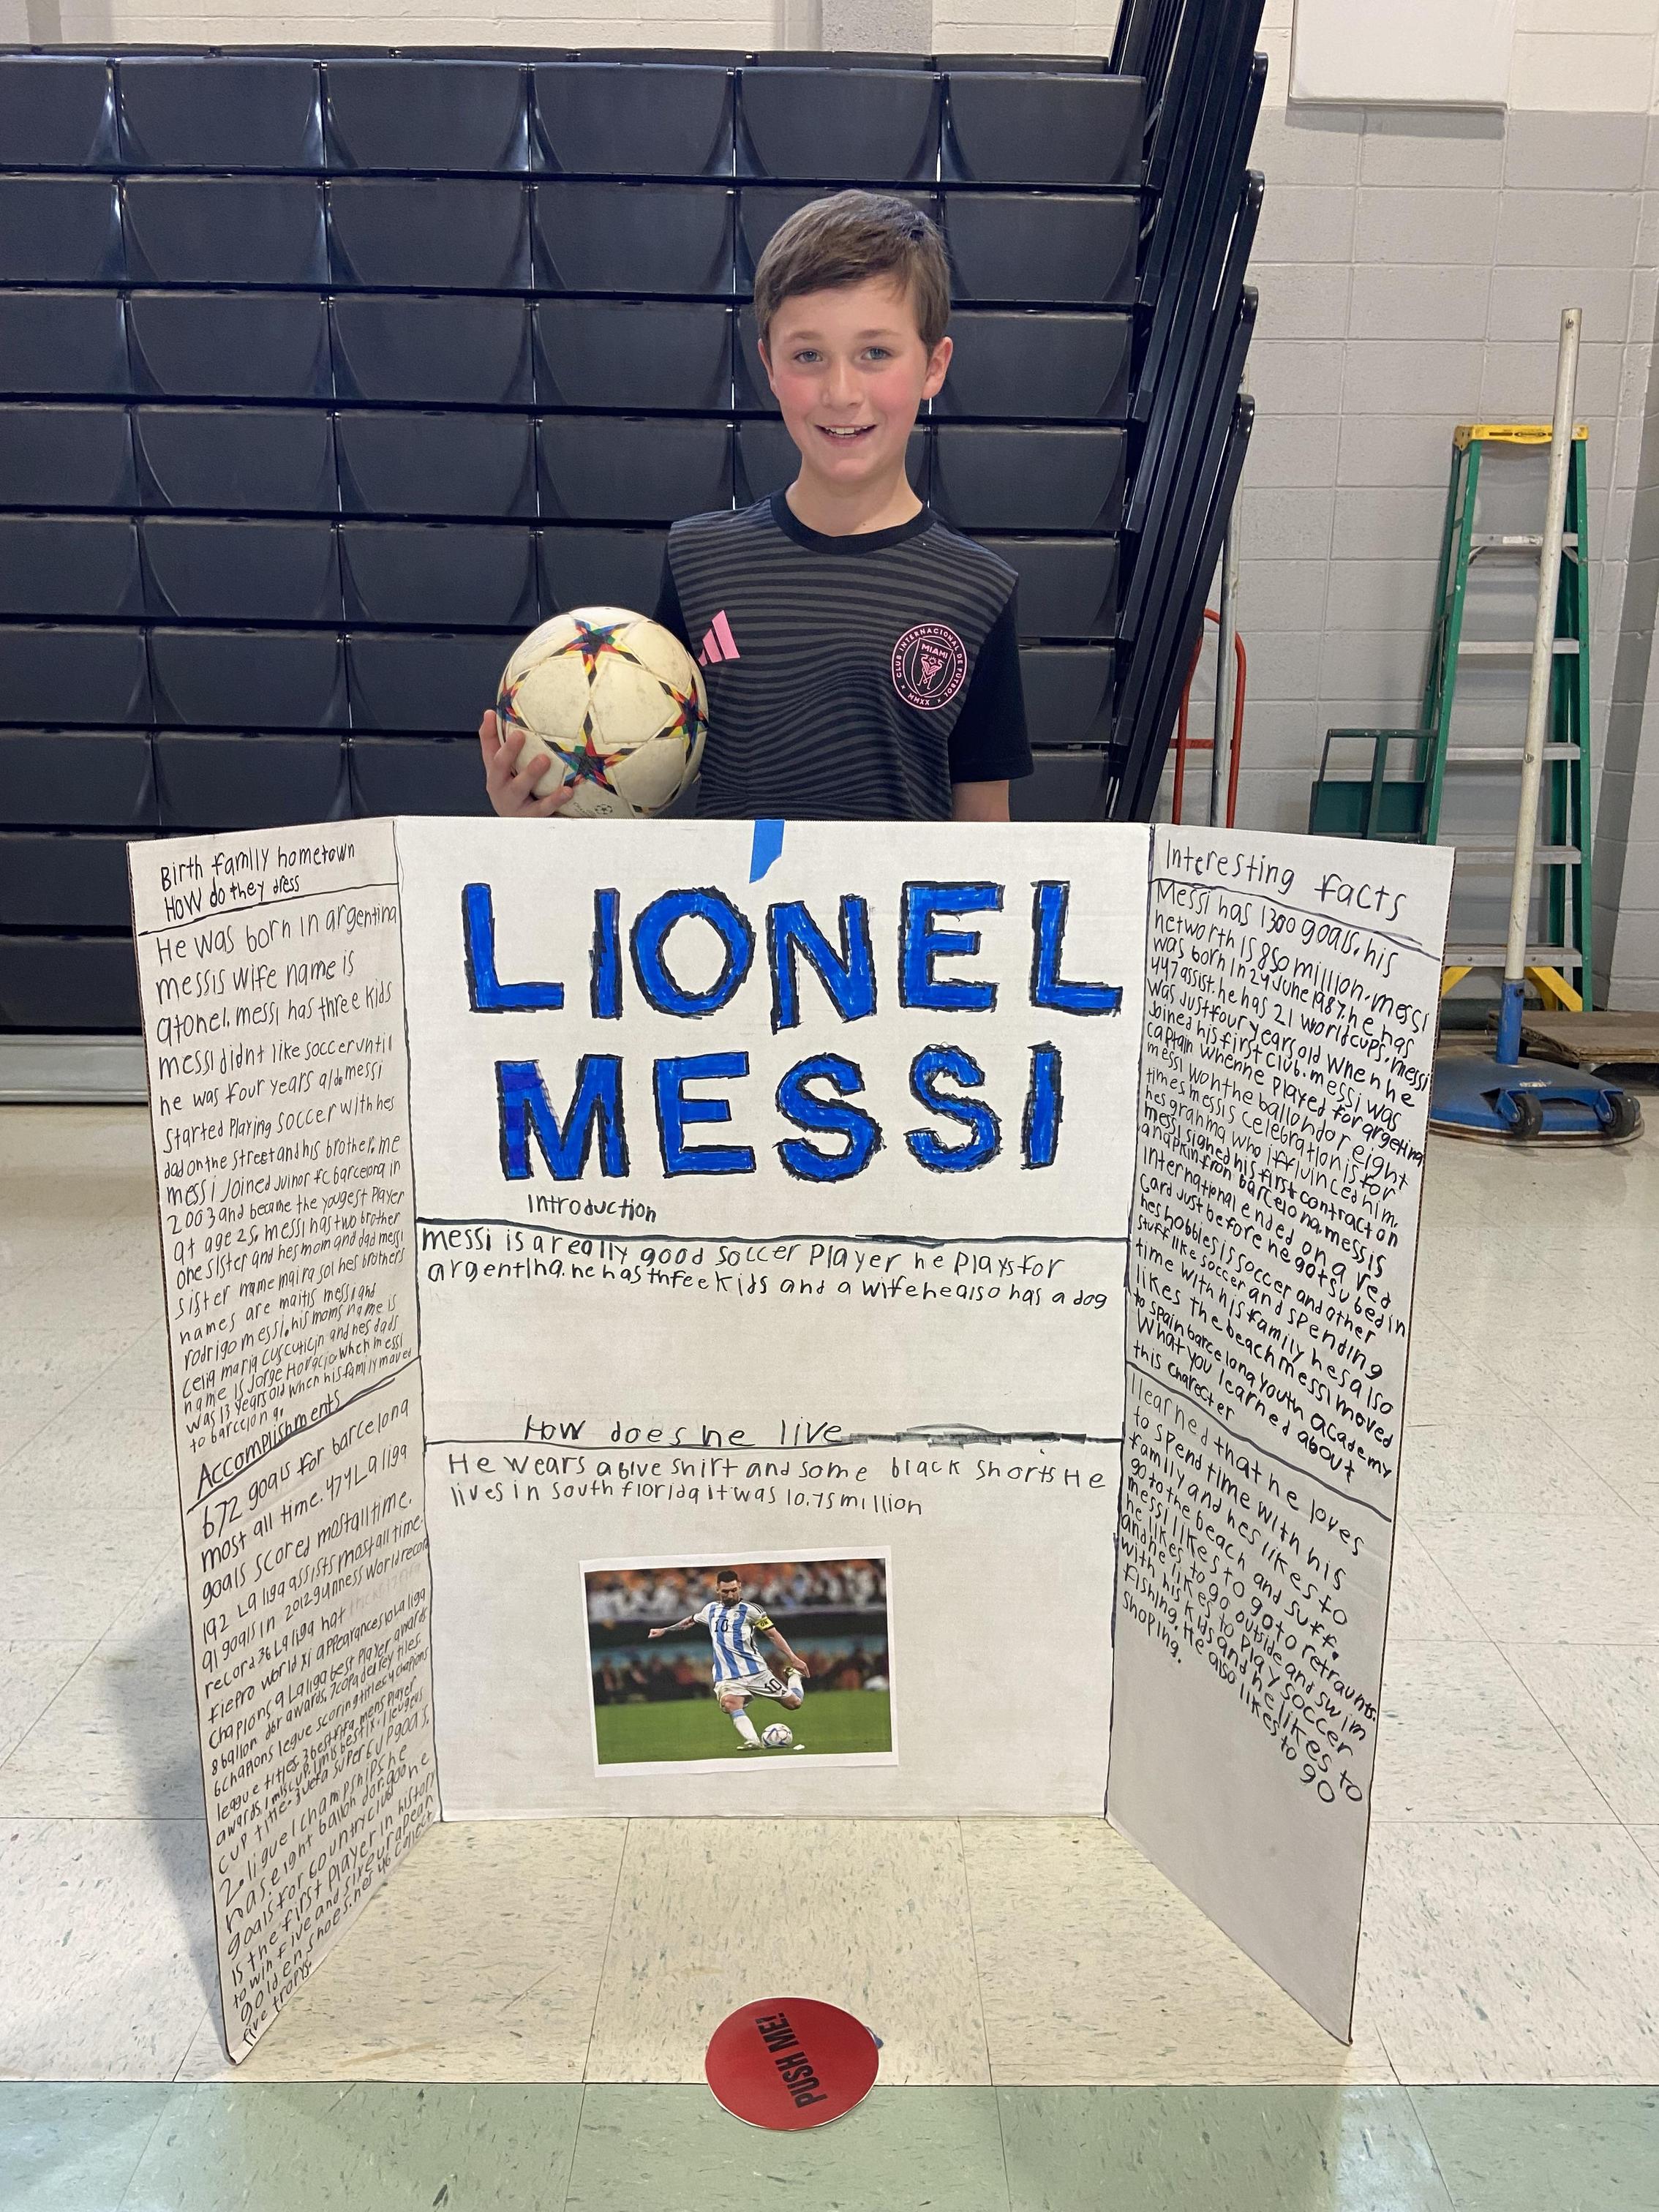 CLUB INTERNACIONAL DE FUTBOL
MIAMI
MMXX
Birth family hometown
How do they dress
He was born in argentina
messis wife name is
messi has three kids
messi didnt like soccer until
he was four years messi
started playing soccer with hes
dad on the street and his brother. me
messi joined fc barcelona in
2003 and became the yougest player
at age 25. messi has two brother
one sister and hes mom and dad messi
sister name maira sol hes brothers
names are matis messi and
rodrigo messi. his moms name is
celia maria cuccuticin and hes dads
name is Jorge Horacio. when messi
was 13 years old when his family moved
to barcelona.
Accomplishments
672 goals for barcelona
most all time. 474 La liga
goals scored most all time.
192 La liga assists most all time.
91 goals in 2012 guinness world record
record 36 La liga hat
fifpro world xi appearances 10 La liga
Champions 9 La liga best player awards
8 ballon dor awards. 7 copa del rey titles
6 chapions legue scoring titles 4 chapions
league titles 3 best fifa mens player
awards. 1 leugeus
cup title. 3 uefa super cup goals.
2. ligue 1 champships. he
has eight ballon dor. goon e
goals for country club
is the first player in history
to win five and six europaean
golden shoes. hes 46 collect
five tropys.
LIONEL
MESSI
Introduction
messi is a really good soccer player he plays for
argentina. he has three kids and a wife he also has a dog
How does he live
He wears a blue shirt and some black shorts He
lives in south florida it was 10.75 million
10
10
Interesting facts
Messi has 1300 goals. his
networth is 850 million. messi
was born in 24 June 1987. he has
447 assist. he has 21 world cups. messi
was just four years old when he
joined his first club. messi was
captain when he played for argetina
messi won the ballondor eight
times messis celebration is for
hes granma who iffuinced him.
messi signed his first contract on
a napkin from barcelona. messis
International ended on a red
card just before he got subed in
hes hobbies is soccer and other
stuff like soccer and spending
time with his family hes also
likes the beach messi moved
to spain barcelona youth academy
What you learned about
this charecter
I learned that he loves
to spend time with his
family and hes likes to
go to the beach and suff.
messi likes to go to retraunts.
he likes to go outside and swim
and he likes to play soccer
with his kids and he likes to
fishing. He also likes to go
shoping.
PUSH ME!